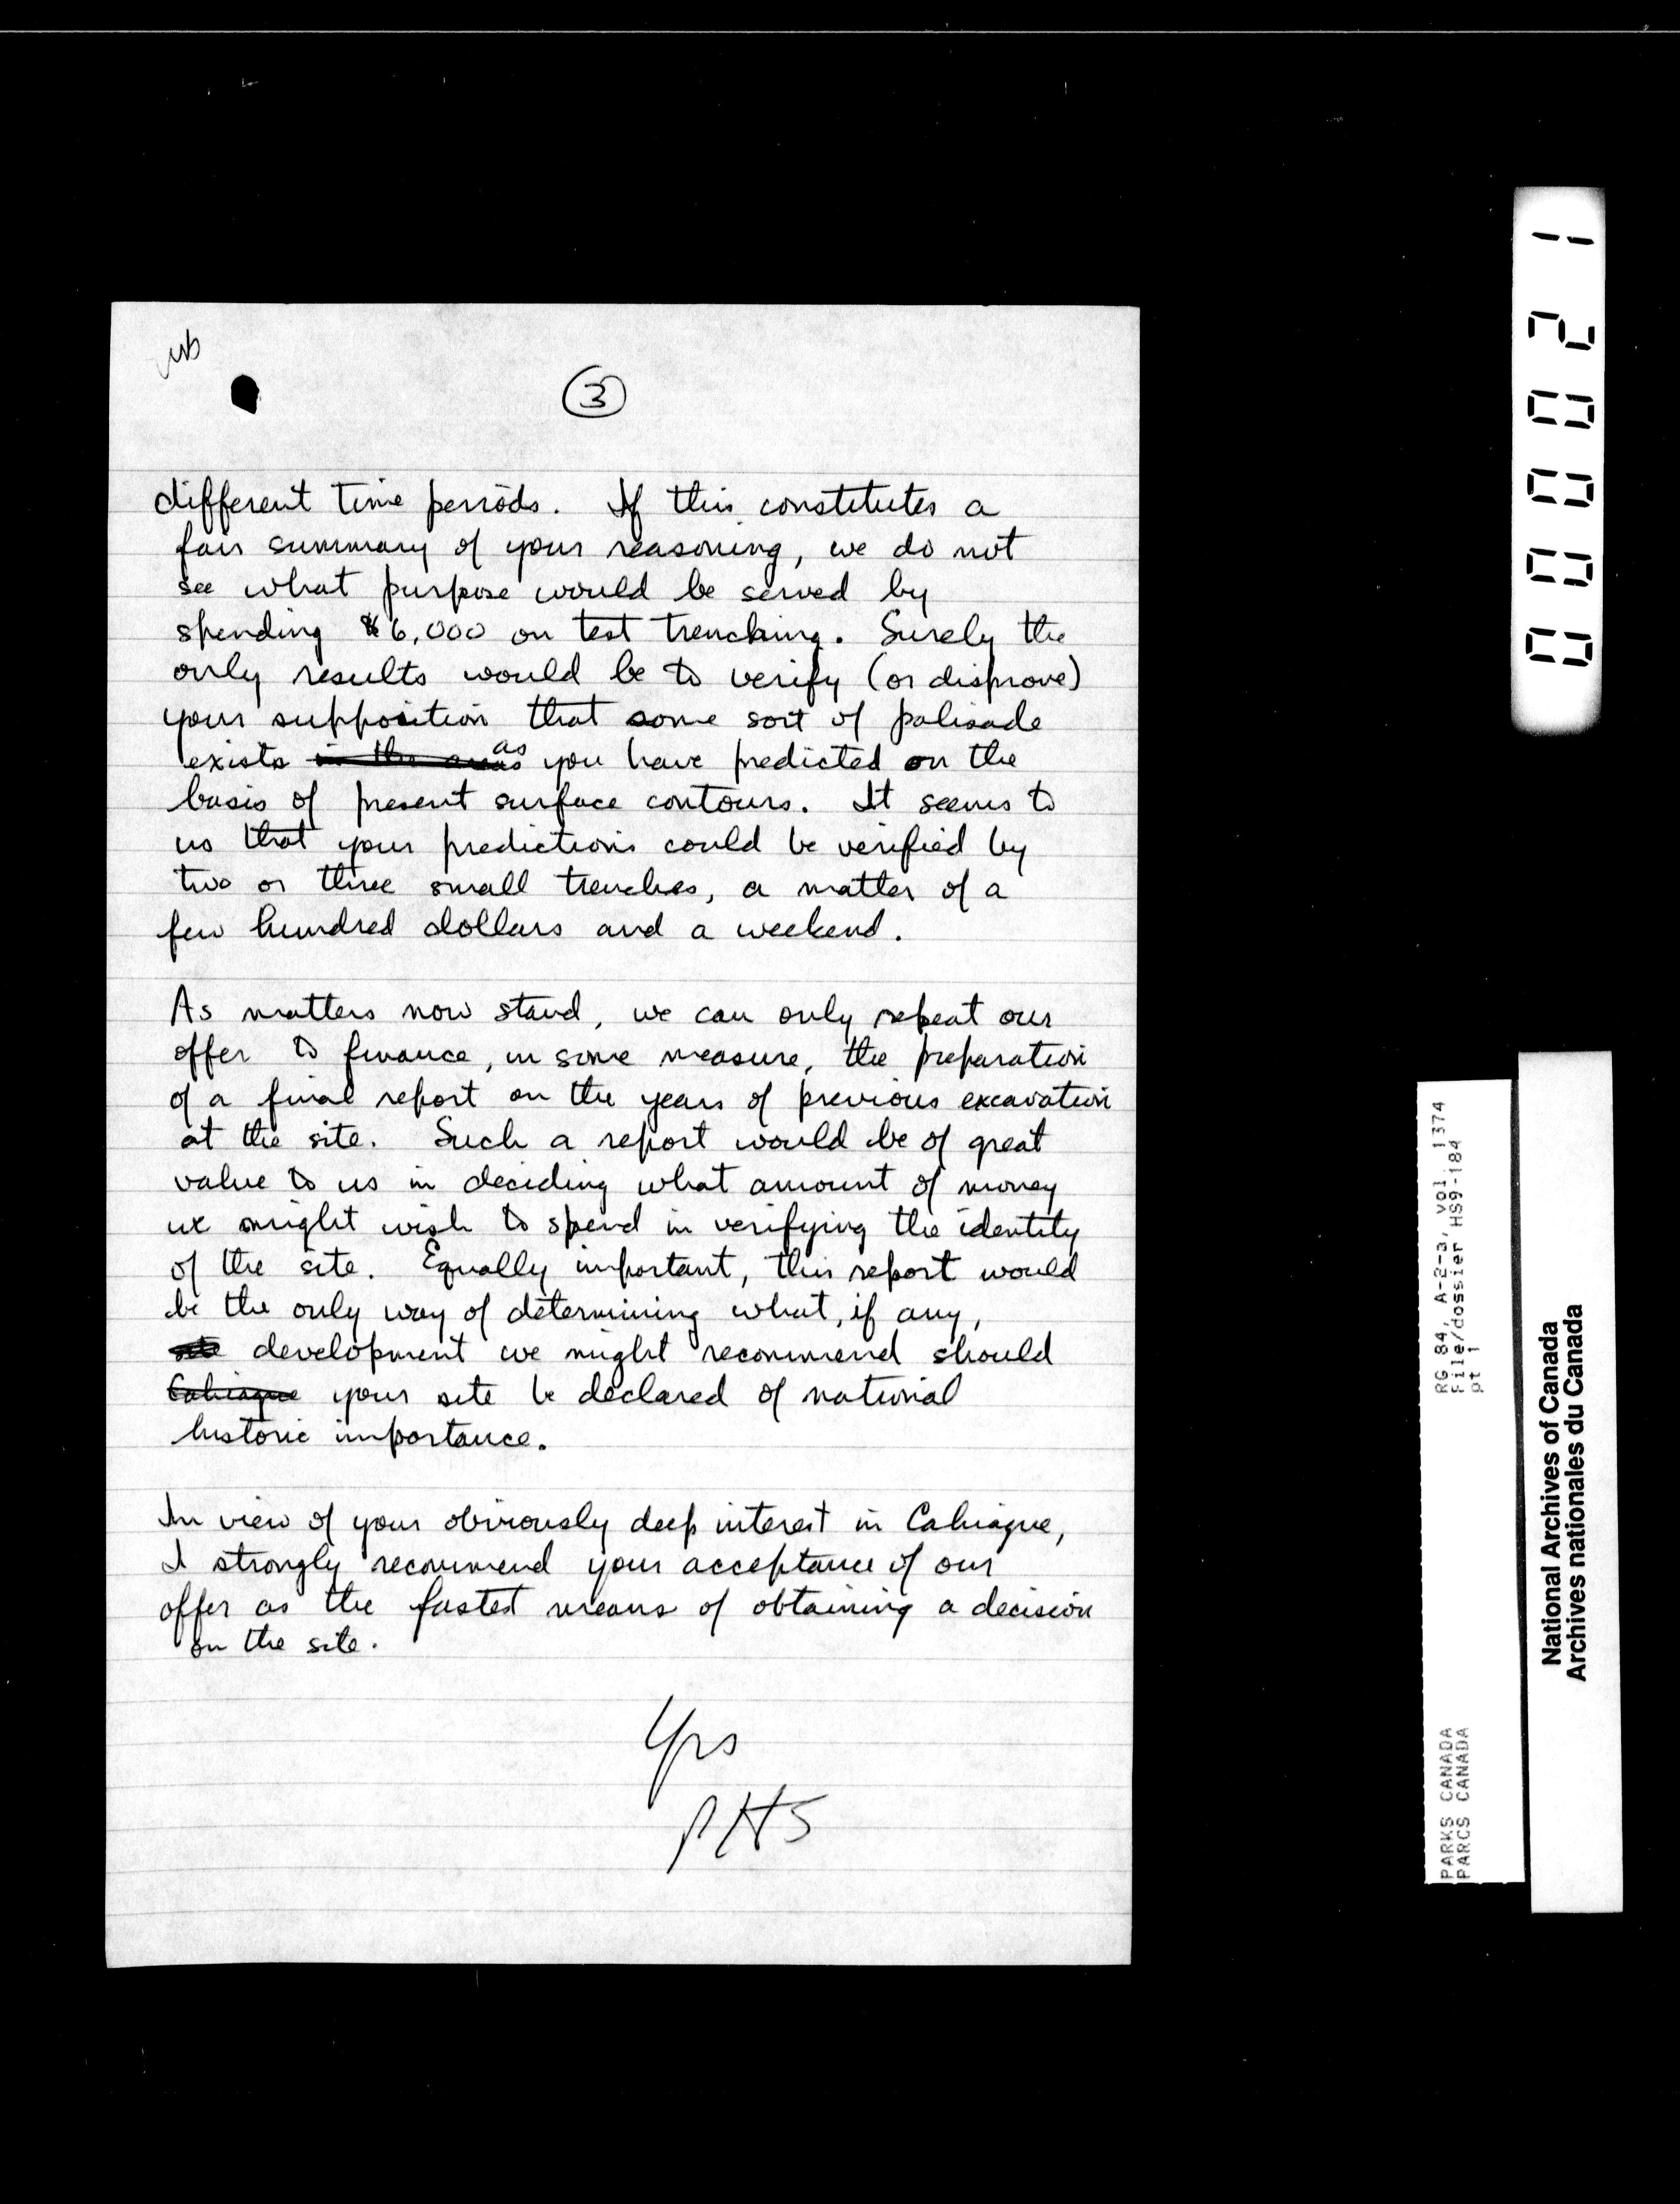 3
different time periods. If this constitutes a
fair summary of your reasoning, we do not
see what purpose would be served by
spending $6,000 on test trenching. Surely the
only results would be to verify (or disprove)
your supposition that some sort of palisade
exists in the areas as you have predicted on the
basis of present surface contours. It seems to
us that your predictions could be verified by
two or three small trenches, a matter of a
few hundred dollars and a weekend.
As matters now stand, we can only repeat our
offer to finance, in some measure, the preparation
of a final report on the years of previous excavation
at the site. Such a report would be of great
value to us in deciding what amount of money
we might wish to spend in verifying the identity
of the site. Equally important, this report would
be the only way of determining what, if any,
site development we might recommend should
Cahiague your site be declared of national
historic importance.
In view of your obviously deep interest in Cahiague,
I strongly recommend your acceptance of our
offer as the fastest means of obtaining a decision
on the site.
Yrs
PHS
000021
RG 84, A-2-a, vol. 1374
File/dossier HS9-184
pt 1
PARKS CANADA
PARCS CANADA
National Archives of Canada
Archives nationales du Canada